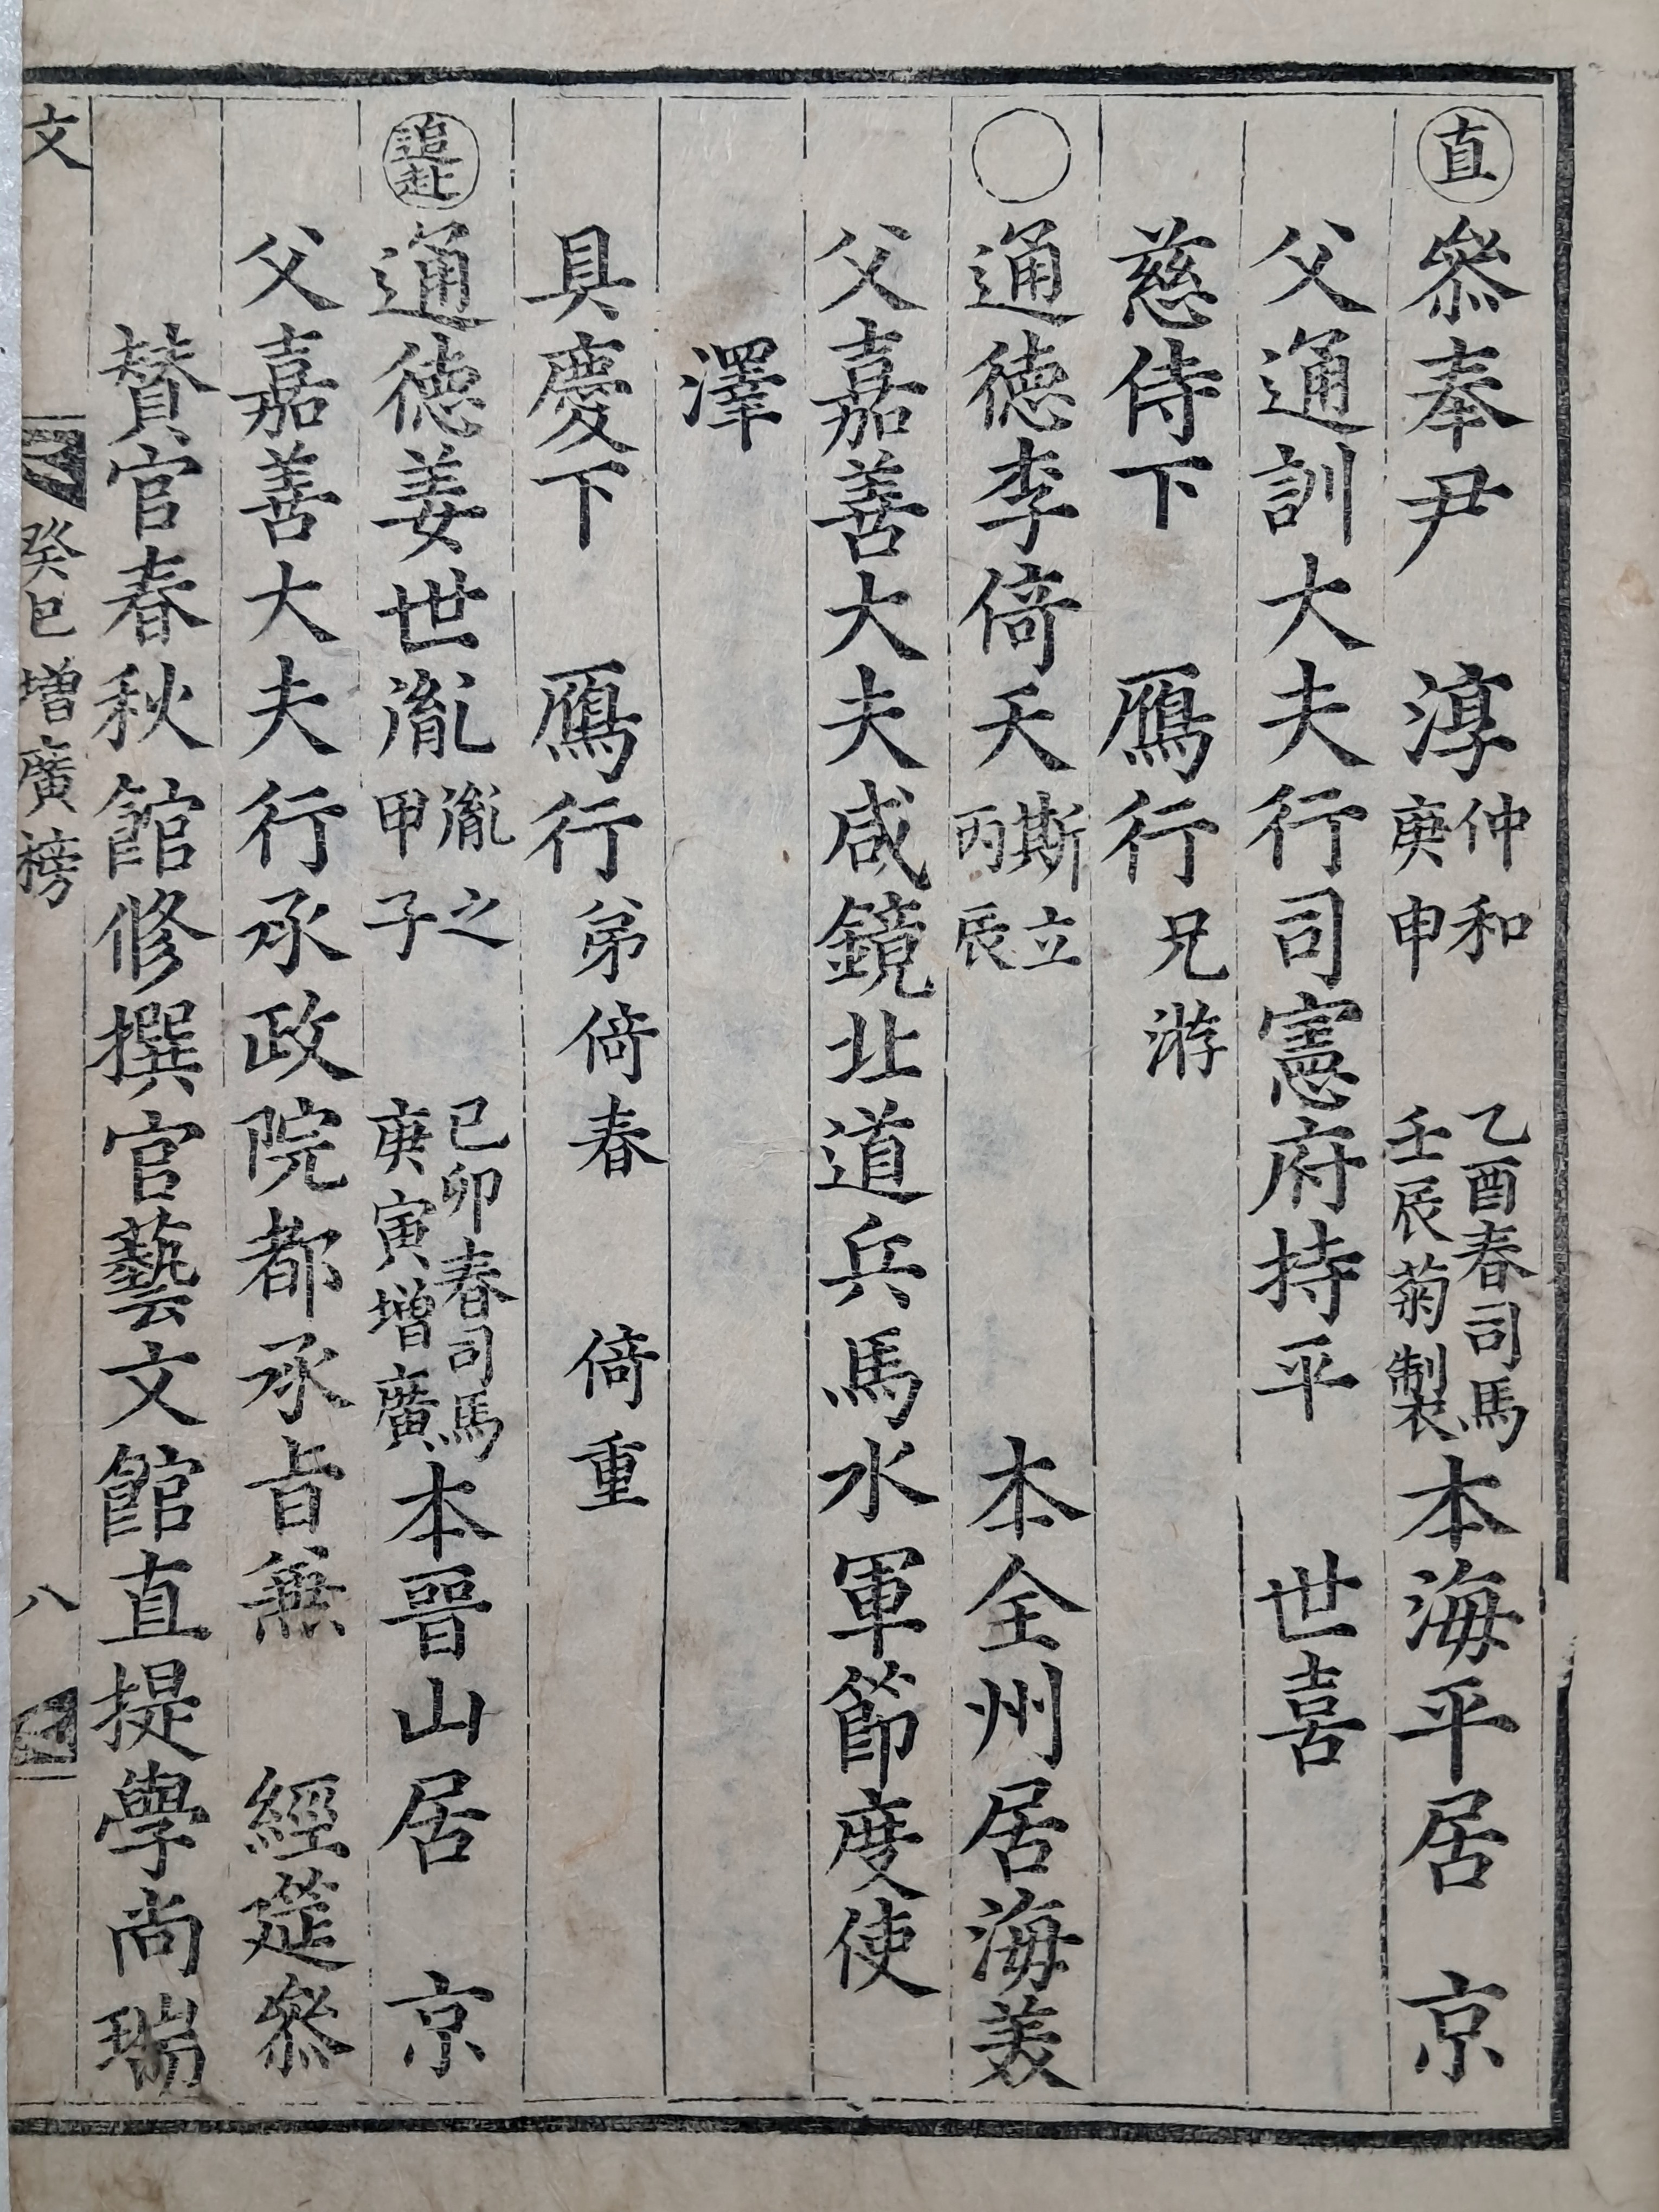 直 叅奉尹 淳 仲和 庚申 乙酉春司馬 壬辰菊製 本海平居 京
父通訓大夫行司憲府持平 世喜
慈侍下 鴈行 兄 游
通德李倚天 斯立 丙辰 本全州居海美
父嘉善大夫咸鏡北道兵馬水軍節度使
澤
具慶下 鴈行 弟倚春 倚重
追赴 通德姜世胤 胤之 甲子 己卯春司馬 庚寅增廣 本晋山居 京
父嘉善大夫行承政院都承旨兼 經筵叅
賛官春秋館修撰官藝文館直提學尚瑞
文 癸巳增廣榜 八